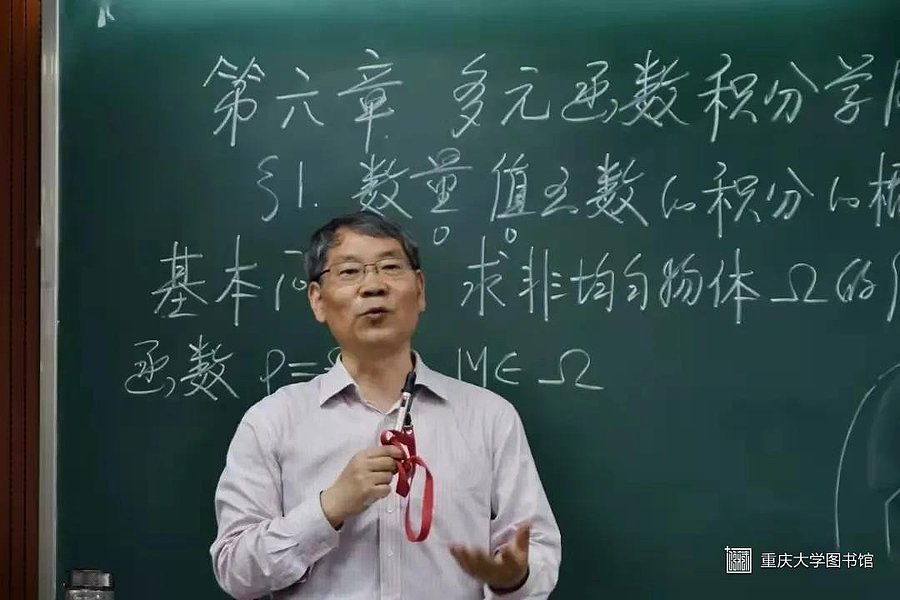 第六章 多元函数积分学
§1. 数量值函数的积分的概
基本问 求非均匀物体Ω的
函数 ρ= M∈Ω
重庆大学图书馆